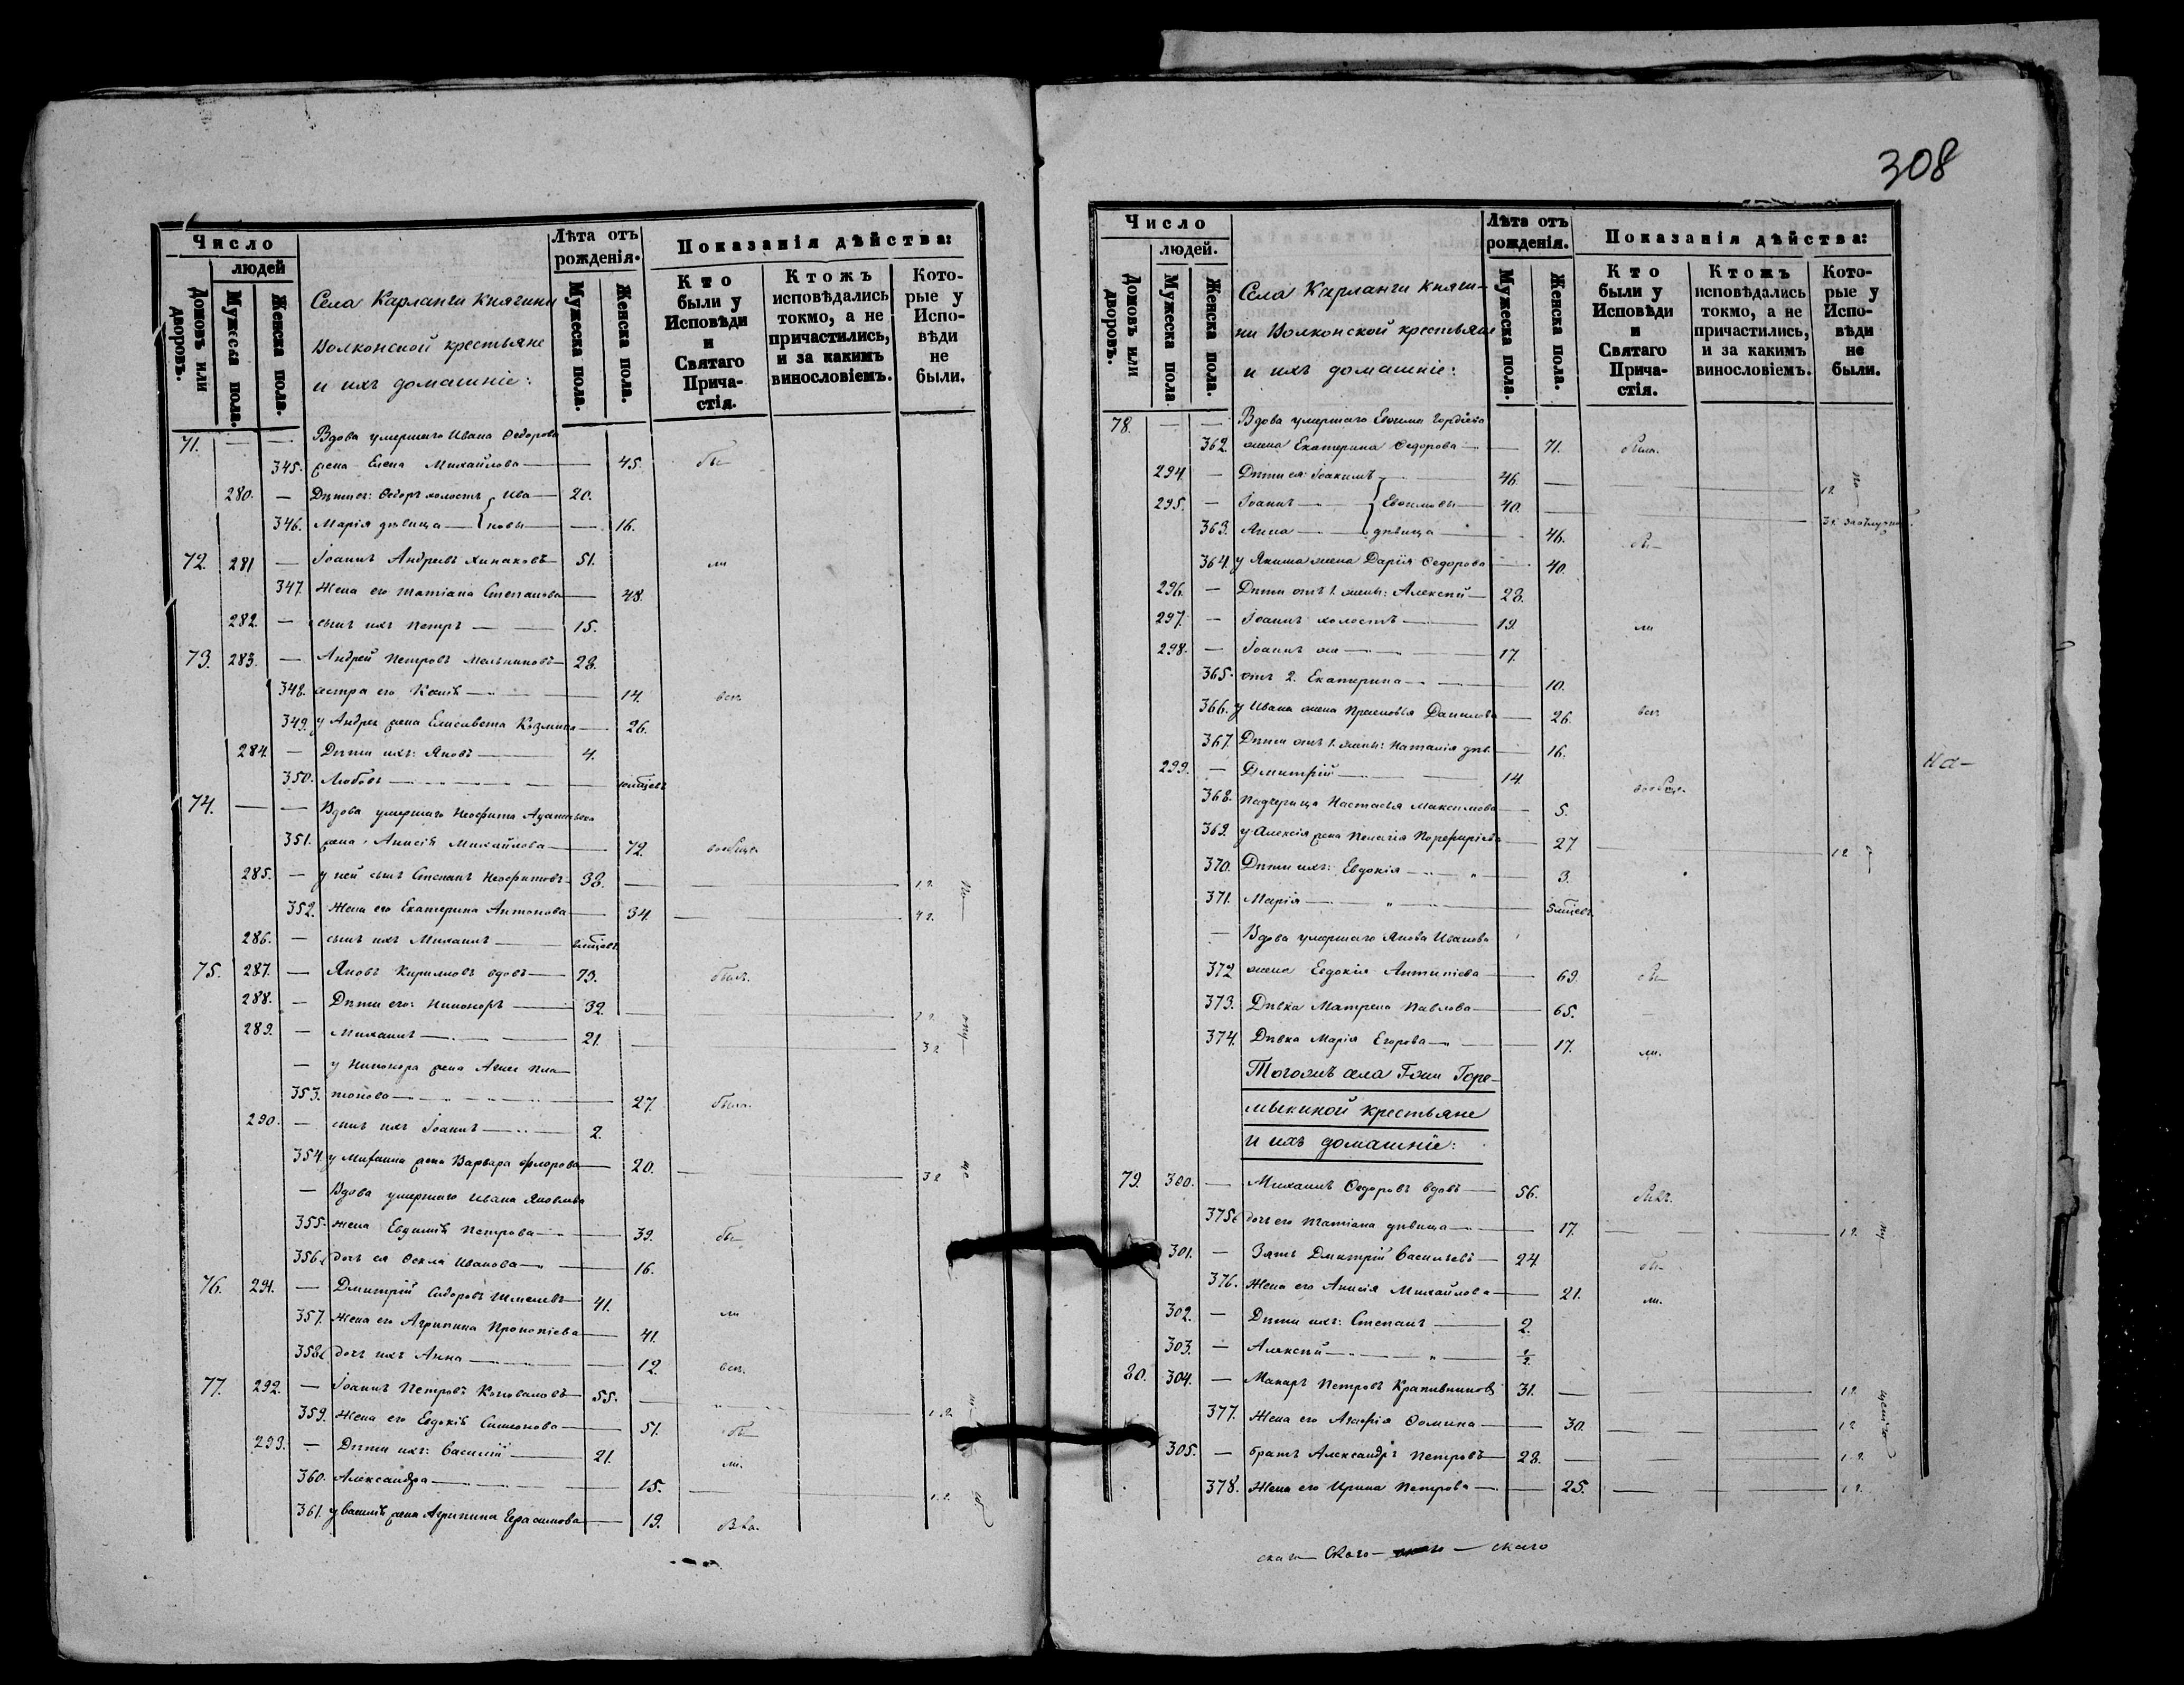 Число
людей
Домовъ или дворовъ.
Мужеска пола.
Женска пола.
Села Карланги Княгини
Волконской крестьяне
и ихъ домашніе:
Лѣта отъ
рожденія.
Мужеска пола.
Женска пола.
Показанія дѣйства:
Кто
были у
Исповѣди
и
Святаго
Прича-
стія.
Ктожъ
исповѣдались
токмо, а не
причастились,
и за какимъ
винословіемъ.
Кото-
рые у
Испо-
вѣди
не
были.
71. — — Вдова умершаго Ивана Ѳедорова
345. жена Елена Михайлова — 45. бы—
280. — Дѣти ея: Ѳедоръ холостъ Ива— 20.
346. Марія дѣвица — новы — 16.
72. 281 — Іоаннъ Андреевъ 51. ли
347. Жена его Татіана Степанова — 48.
282. — сынъ ихъ Петръ — 15.
73. 283. — Андрей Петровъ Мельниковъ — 28.
348. сестра его — 14. вси.
349. у Андрея жена Елисавета Козмина — 26.
284. — Дѣти ихъ: Яковъ — 4.
350. Любовь —
74. — — Вдова умершаго Неофита
351. жена Анисія Михайлова — 72. вообще.
285. — у ней сынъ Степанъ Неофитовъ — 38. — 1 г. По—
352. Жена его Екатерина Антонова — 34. — 4 г.
286. — сынъ ихъ Михаилъ —
75. 287. — Яковъ Кириловъ вдовъ — 73. былъ.
288. — Дѣти его: Никоноръ — 32. — 2 г.
289. — Михаилъ — 21. — 3 г
— у Никонора жена Пла—
353. тонова — 27. была.
290. — сынъ ихъ Іоаннъ — 2.
354. у Михаила жена Варвара Флорова — 20. — 3 г
— Вдова умершаго Ивана Яковлева
355. жена Евдокія Петрова — 39. бы—
356. дочь ея Ѳекла Иванова — 16.
76. 291. — Дмитрій Сидоровъ Шмелевъ — 41. ли
357. Жена его Агрипина Прокопіева — 41.
358. дочь ихъ Анна — 12. вси.
77. 292. — Іоаннъ Петровъ Коноваловъ — 55. — 1 г.
359. Жена его Евдокія Симеонова — 51. бы—
293. — Дѣти ихъ: Василій — 21. ли.
360. Александра — 15. — 1 г.
361. у Василія жена Агрипина Герасимова — 19. Была.
308
Число
людей.
Домовъ или дворовъ.
Мужеска пола
Женска пола.
Села Карланги Княги-
ни Волконской крестьяне
и ихъ домашніе:
Лѣта отъ
рожденія.
Мужеска пола.
Женска пола.
Показанія дѣйства:
Кто
были у
Исповѣди
и
Святаго
Прича-
стія.
Ктожъ
исповѣдались
токмо, а не
причастились,
и за какимъ
винословіемъ.
Кото-
рые у
Испо-
вѣди
не
были.
78. — — Вдова умершаго Евѳима Гордѣева
362. жена Екатерина Ѳедорова — 71. была.
294. — Дѣти ея: Іоакимъ — 46. — 1 г. по—
295. — Іоаннъ — Евѳимовы — 40. — 3 г.
363. Анна — дѣвица — 46. бы—
364. у Якима жена Дарія Ѳедорова — 40.
296. — Дѣти отъ 1. жены: Алексѣй — 23.
297. — Іоаннъ холостъ — 19. ли
298. — Іоаннъ же — 17.
365. отъ 2. Екатерина — 10.
366. у Ивана жена Данилова — 26. вси.
367. Дѣти отъ 1. жены: Наталія дѣв. — 16.
299. — Дмитрій — 14. вообще.
368. Падчерица Настасья Максимова — 5.
На—
369. у Алексѣя жена Пелагія Порфиріева — 27. — 1 г
370. Дѣти ихъ: Евдокія — 3.
371. Марія —
— Вдова умершаго Якова Иванова
372 жена Евдокія Антипіева — 69. бы—
373. Дѣвка Матрена Павлова — 65.
374. Дѣвка Марія Егорова — 17. ли.
Тогожъ села Г-жи Горе-
мыкиной крестьяне
и ихъ домашніе:
79. 300. — Михаилъ Ѳедоровъ вдовъ — 56. былъ.
375. дочь его Татіана дѣвица — 17. — 1 г.
301. — Зять Дмитрій Васильевъ — 24. бы—
376. Жена его Анисія Михайлова — 21. ли.
302. — Дѣти ихъ: Степанъ — 2.
303. — Алексѣй — ½
80. 304. — Макаръ Петровъ Крапивниковъ 31. — 1 г.
377. Жена его Агафія Ѳомина — 30. — 1 г
305. — братъ Александръ Петровъ — 28. — 1 г.
378. Жена его Ирина Петрова — 25. — 1 г.
скаго — скаго — скаго — скаго